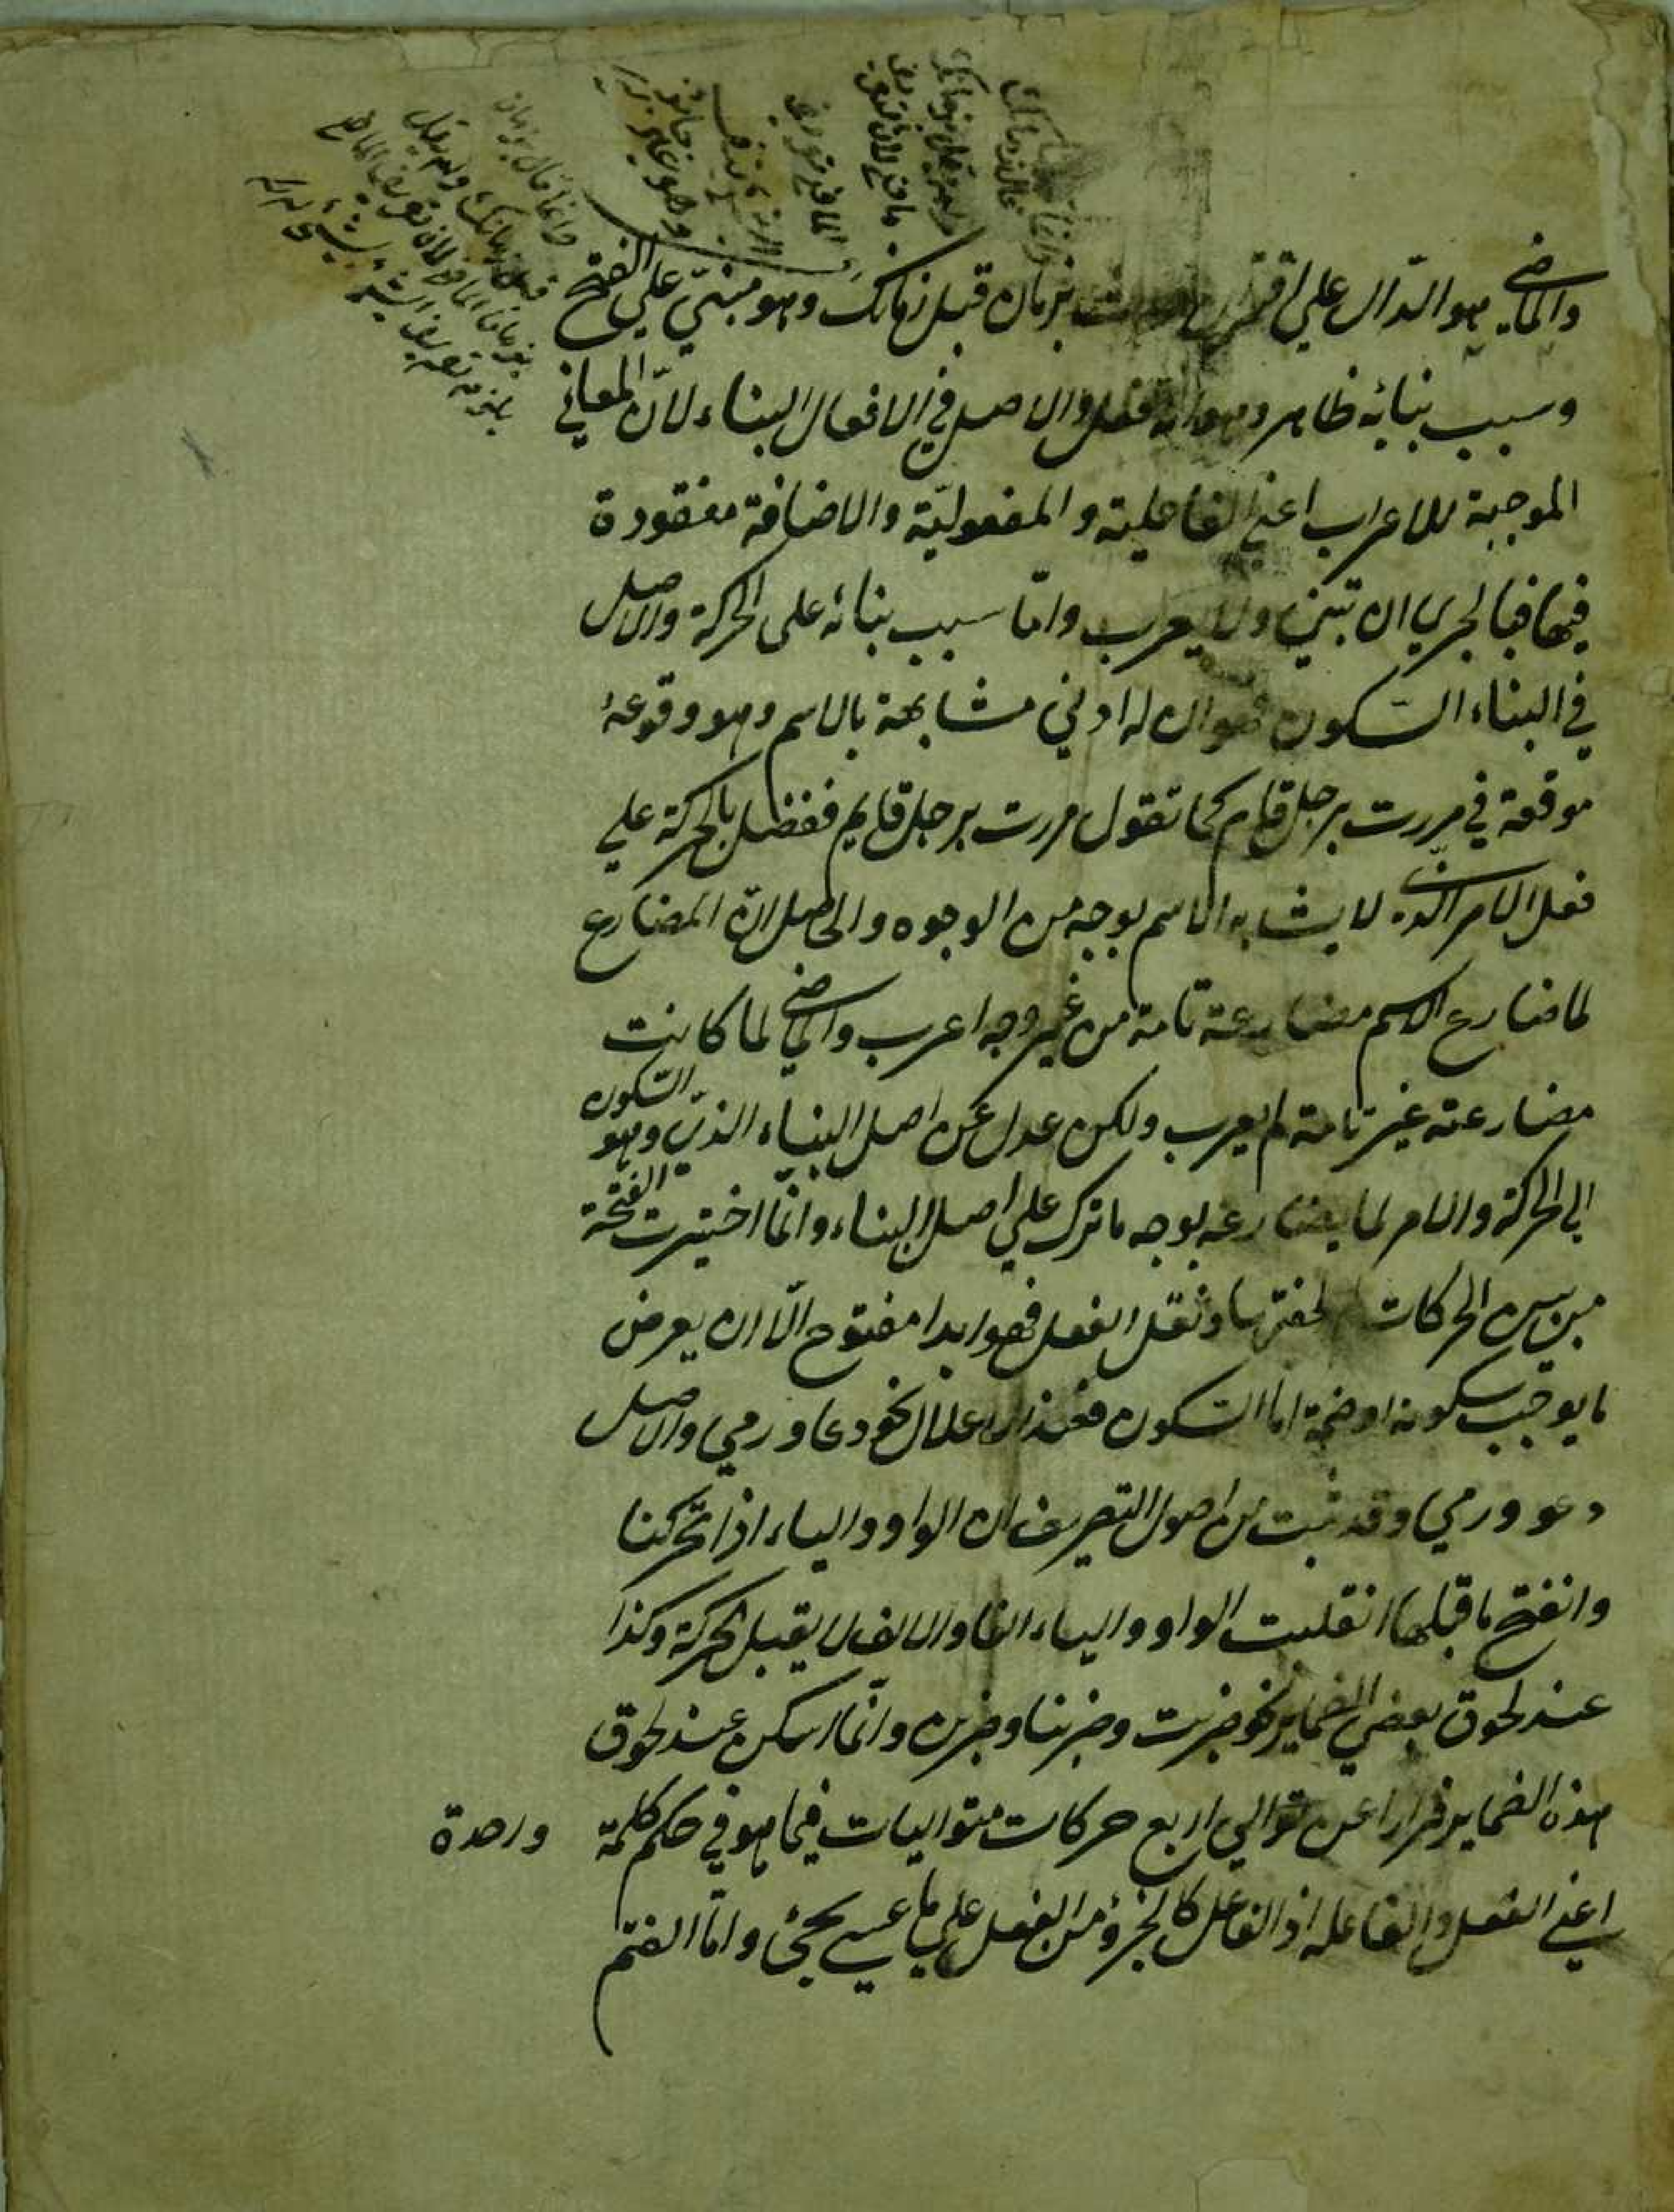 والماضي هو الدّال علي اقتران حدث بزمان قبل زمانك وهو مبنيّ علي الفتح
وسبب بنائه ظاهر وهو انه فعل والاصل في الافعال البناء لانّ المعاني
الموجبة للاعراب اعني الفاعلية و المفعوليّة والاضافة مفقودة
فيها فبالحري ان تبني ولا يعرب وامّا سبب بنائه على الحركة والاصل
في البناء السّكون فهو ان له ادني مشابهة بالاسم وهو وقوعه
موقعة في مررت برجل قام كما تقول مررت برجل قايم ففضل بالحركة علي
فعل الامر الّذي لا يشابه الاسم بوجه من الوجوه والحاصل انّ المضارع
لما ضارع الاسم مضارعة تامة من غير وجه اعرب والماضي لما كانت
مضارعته غير تامة لم يعرب ولكن عدل عن اصل البناء الذي وهو السّكون
الي الحركة والامر لما يضارعه بوجه ما ترك علي اصل البناء وانّما اختيرت الفتحة
من بين الحركات لخفتها وثقل الفعل فهو ابدا مفتوح الّا ان يعرض
ما يوجب سكونه او ضمّة اما السّكون فعند الاعلال نحو دعا و رمي والاصل
دعو ورمي وقد ثبت من اصول التصريف ان الواو والياء اذا تحركنا
وانفتح ما قبلها انقلبت الواو والياء الفا والالف لا يقبل الحركة وكذا
عند لحوق بعض الضماير نحو ضربت وضربنا وضربن وانّما اسكن عند لحوق
هذه الضماير فرارا عن توالي اربع حركات متواليات فيما هو في حكم كلمة واحدة
اعني الفعل والفاعل اذ الفاعل كالجزؤ من الفعل علي ما عسي يجئ وامّا الضم